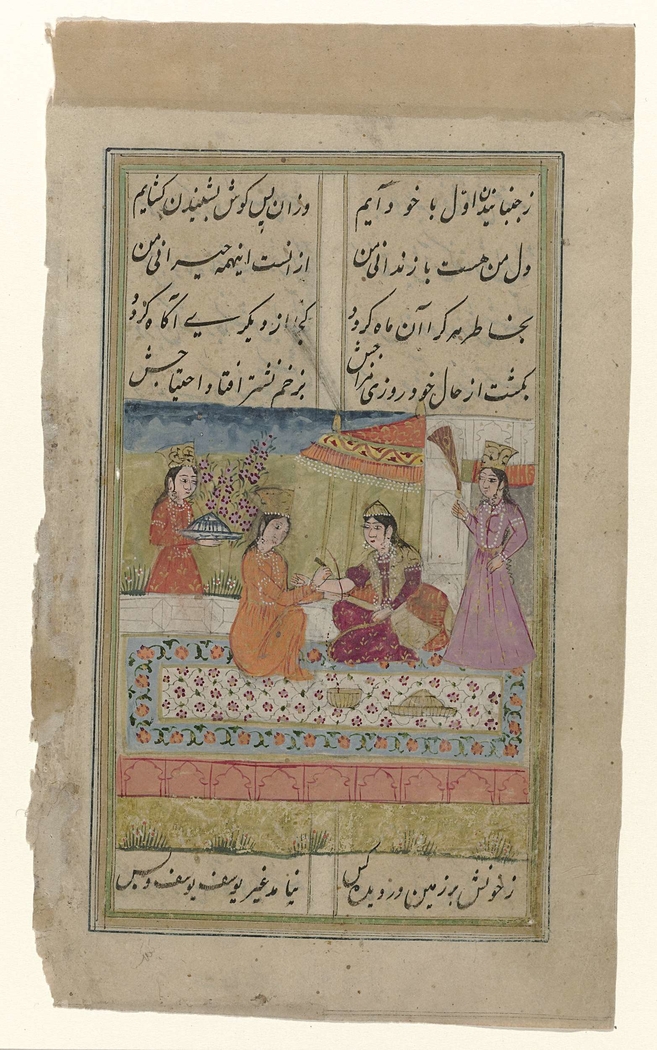 ز جنبانیدن اول با خود آیم وزان پس کوش بشنیدن کشایم
دل من هست با زندانی من از انست اینهمه حیرانی من
بخاطر هر کرا آن ماه کردد کجا از دیکرے آکاه کردد
بکشت از حال خود روزی مزاجش بزخم نشتر افتاد احتیاجش
ز خونش بر زمین در دیده کس نیامد غیر یوسف یوسف و بس